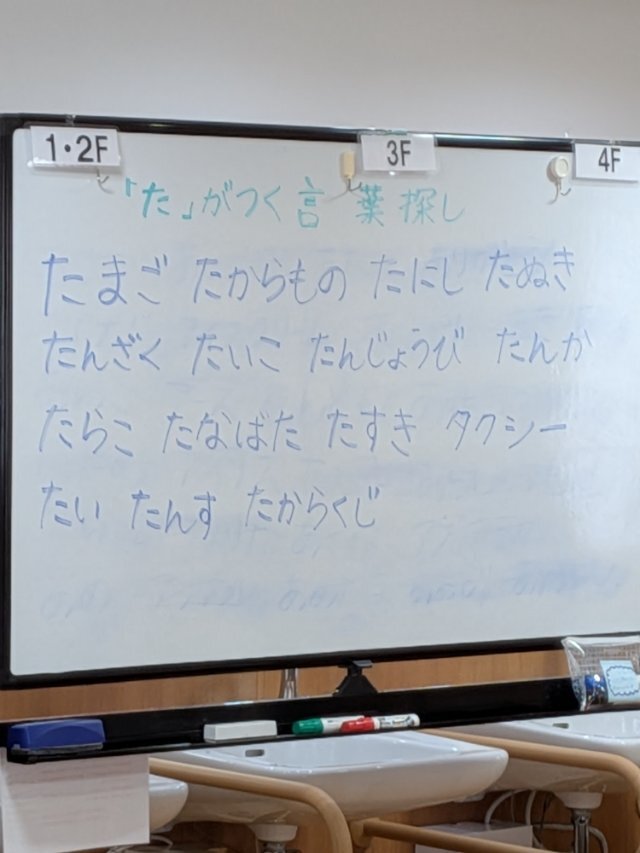 1・2F 3F 4F
「た」がつく言葉探し
たまご たからもの たにし たぬき
たんざく たいこ たんじょうび たんか
たらこ たなばた たすき タクシー
たい たんす たからくじ